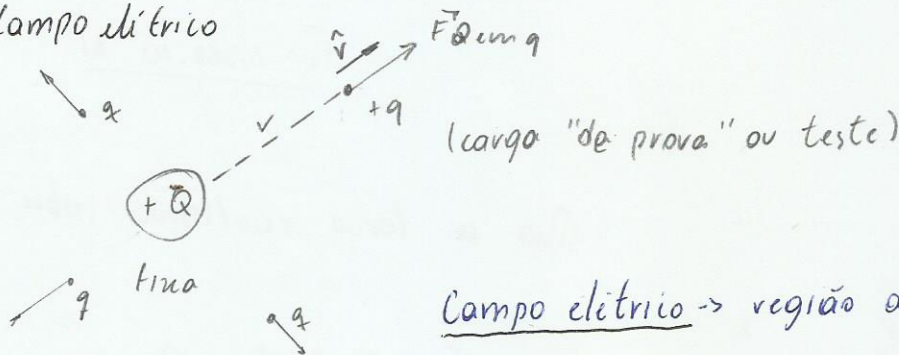 Campo elétrico
r̂
F⃗Q em q
q
r
+q
(carga "de prova" ou teste)
+Q
fixa
q
q
Campo elétrico -> região a